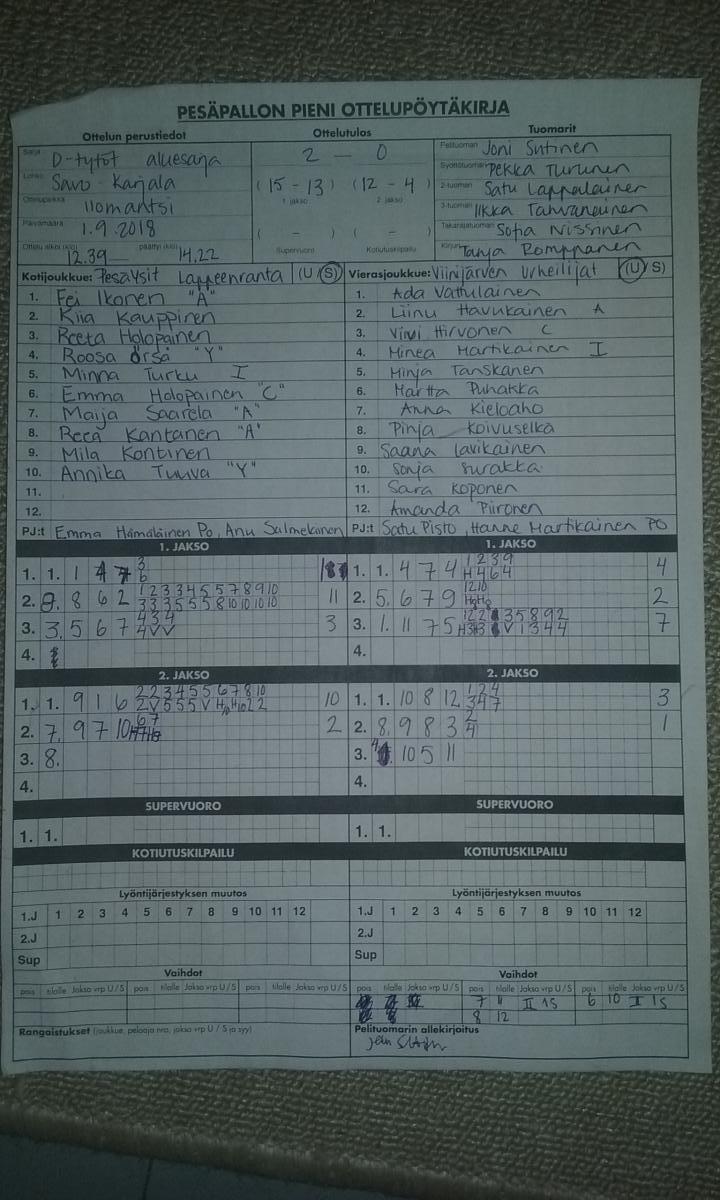 PESÄPALLON PIENI OTTELUPÖYTÄKIRJA
Ottelun perustiedot Ottelutulos Tuomarit
Sarja D-tytöt aluesarja
Lohko Savo-Karjala
Ottelupaikka Ilomantsi
Päivämäärä 1.9.2018
Ottelu alkoi (klo) 12.39 päättyi (klo) 14.22
2 - 0
(15 - 13) (12 - 4)
1. jakso 2. jakso
( - ) ( - )
Supervuoro Kotiutuskilpailu
Pelituomari Joni Sutinen
Syöttötuomari Pekka Turunen
2-tuomari Satu Lappalainen
3-tuomari Ilkka Tahvanainen
Takarajatuomari Sofia Nissinen
Kirjuri Tanja Romppanen
Kotijoukkue: Pesäysit Lappeenranta (U S)
1. Fei Ikonen "A"
2. Kiia Kauppinen
3. Reeta Holopainen
4. Roosa Örså "Y"
5. Minna Turku I
6. Emma Holopainen "C"
7. Maija Saarela "A"
8. Reea Kantanen "A"
9. Mila Kontinen
10. Annika Tuuva "Y"
11.
12.
PJ:t Emma Hämäläinen Po, Anu Salmelainen
Vierasjoukkue: Viinijärven Urheilijat (U S)
1. Ada Vatulainen
2. Liinu Havukainen A
3. Viivi Hirvonen C
4. Minea Martikainen I
5. Minja Tanskanen
6. Martta Puhakka
7. Anna Kieloaho
8. Pinja Koivuselkä
9. Saana Lavikainen
10. Sonja Surakka
11. Sara Koponen
12. Amanda Piironen
PJ:t Satu Pisto, Hanne Martikainen PO
1. JAKSO
1. 1. 1 4 7 3
6
2. 8 6 2 1 2 3 3 4 5 5 7 8 9 10 11
3 3 3 5 5 5 8 10 10 10 10
3. 3. 5 6 7 4 3 4 3
4 V V
4.
1. JAKSO
1. 1. 4 7 4 1 2 3 9 4
H 4 6 4
2. 5. 6 7 9 12 10 2
3. 1. 11 7 5 7
4.
2. JAKSO
1. 1. 9 1 6 2 2 3 4 5 5 6 7 8 10 10
2 V 5 5 5 V
2. 7. 9 7 10 6 7 2
3. 8.
4.
2. JAKSO
1. 1. 10 8 12 1 2 4 3
3 4 7
2. 8. 9 8 3 2 1
4
3. 10 5 11
4.
SUPERVUORO
1. 1.
SUPERVUORO
1. 1.
KOTIUTUSKILPAILU
KOTIUTUSKILPAILU
Lyöntijärjestyksen muutos
1.J 1 2 3 4 5 6 7 8 9 10 11 12
2.J
Sup
Lyöntijärjestyksen muutos
1.J 1 2 3 4 5 6 7 8 9 10 11 12
2.J
Sup
Vaihdot
pois tilalle Jakso vrp U/S pois tilalle Jakso vrp U/S pois tilalle Jakso vrp U/S
Rangaistukset (joukkue, pelaaja nro, jakso vrp U / S ja syy)
Vaihdot
pois tilalle Jakso vrp U/S pois tilalle Jakso vrp U/S pois tilalle Jakso vrp U/S
7 11 II 1S 6 10 I 1S
8 12
Pelituomarin allekirjoitus